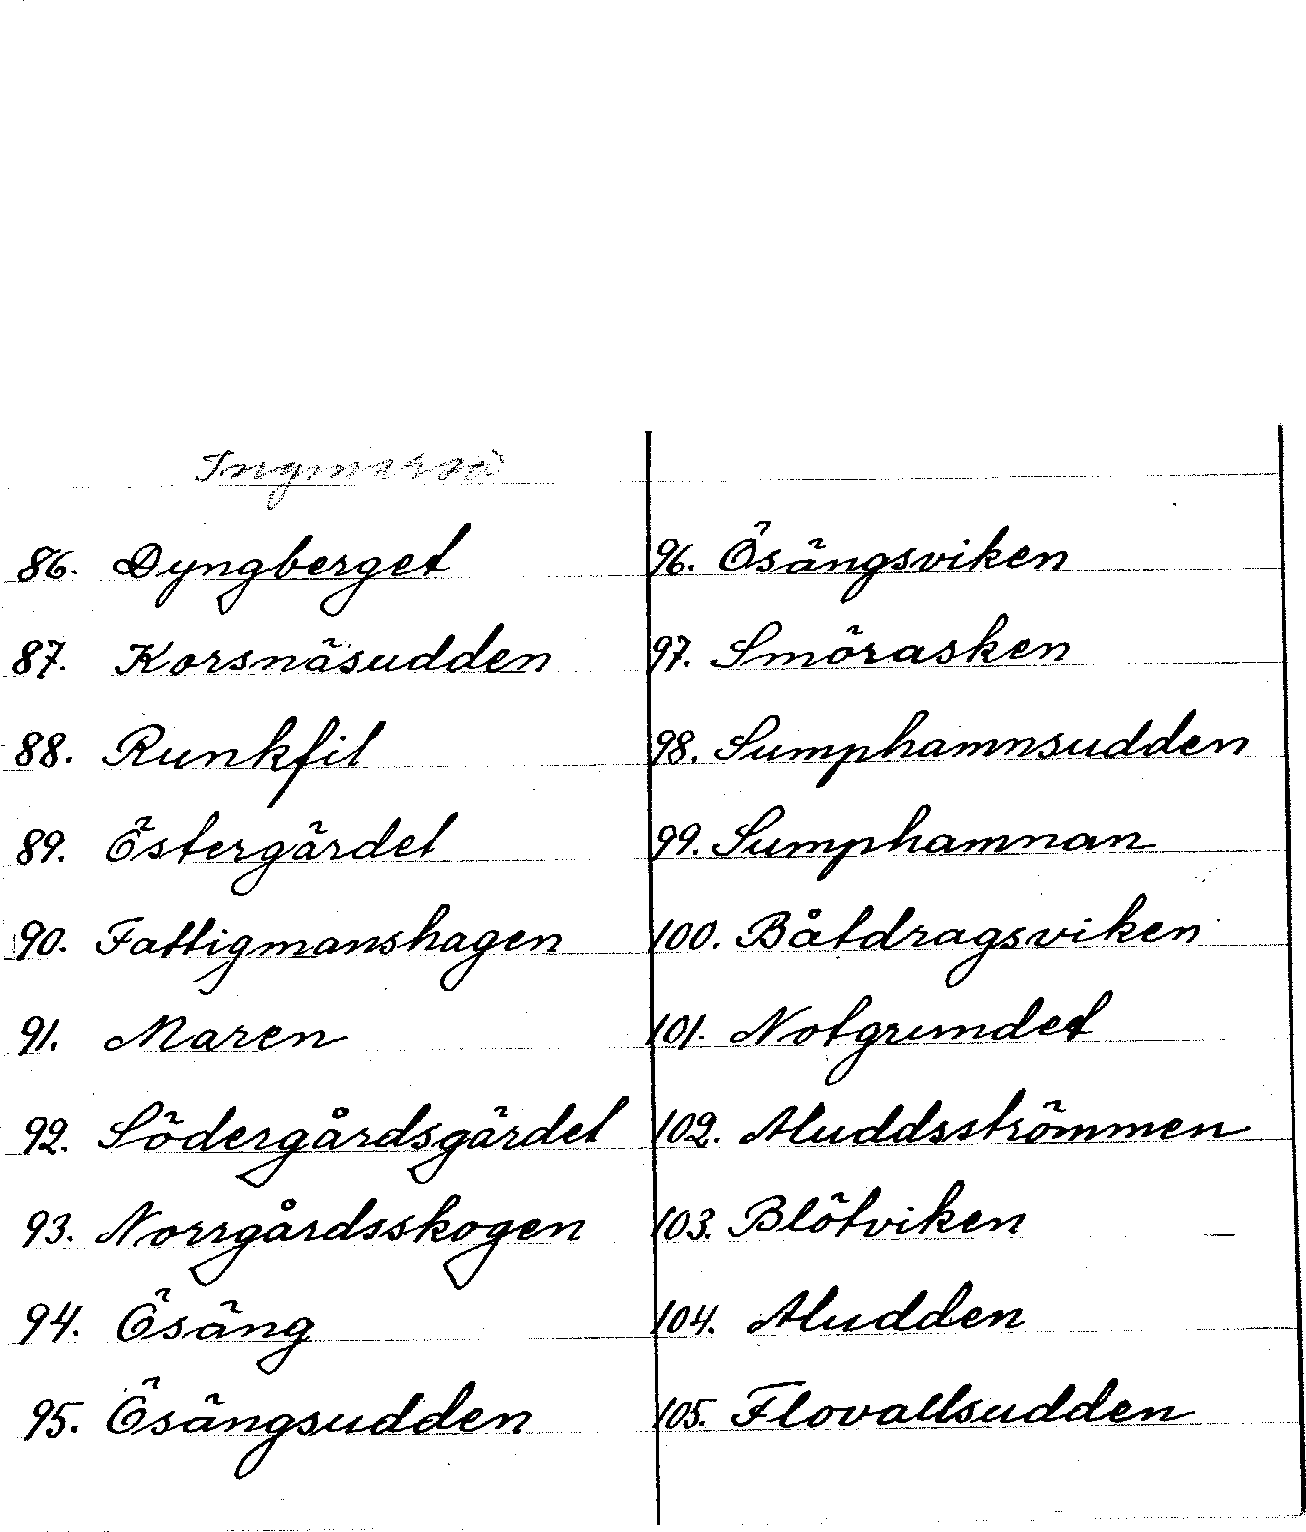 Ingmarsö
86. Dyngberget
87. Korsnäsudden
88. Runkfil
89. Östergärdet
90. Fattigmanshagen
91. Maren
92. Södergårdsgärdet
93. Norrgårdsskogen
94. Ösäng
95. Ösängsudden
96. Ösängsviken
97. Smörasken
98. Sumphamnsudden
99. Sumphamnan
100. Båtdragsviken
101. Notgrundet
102. Aluddsströmmen
103. Blötviken
104. Aludden
105. Flovallsudden